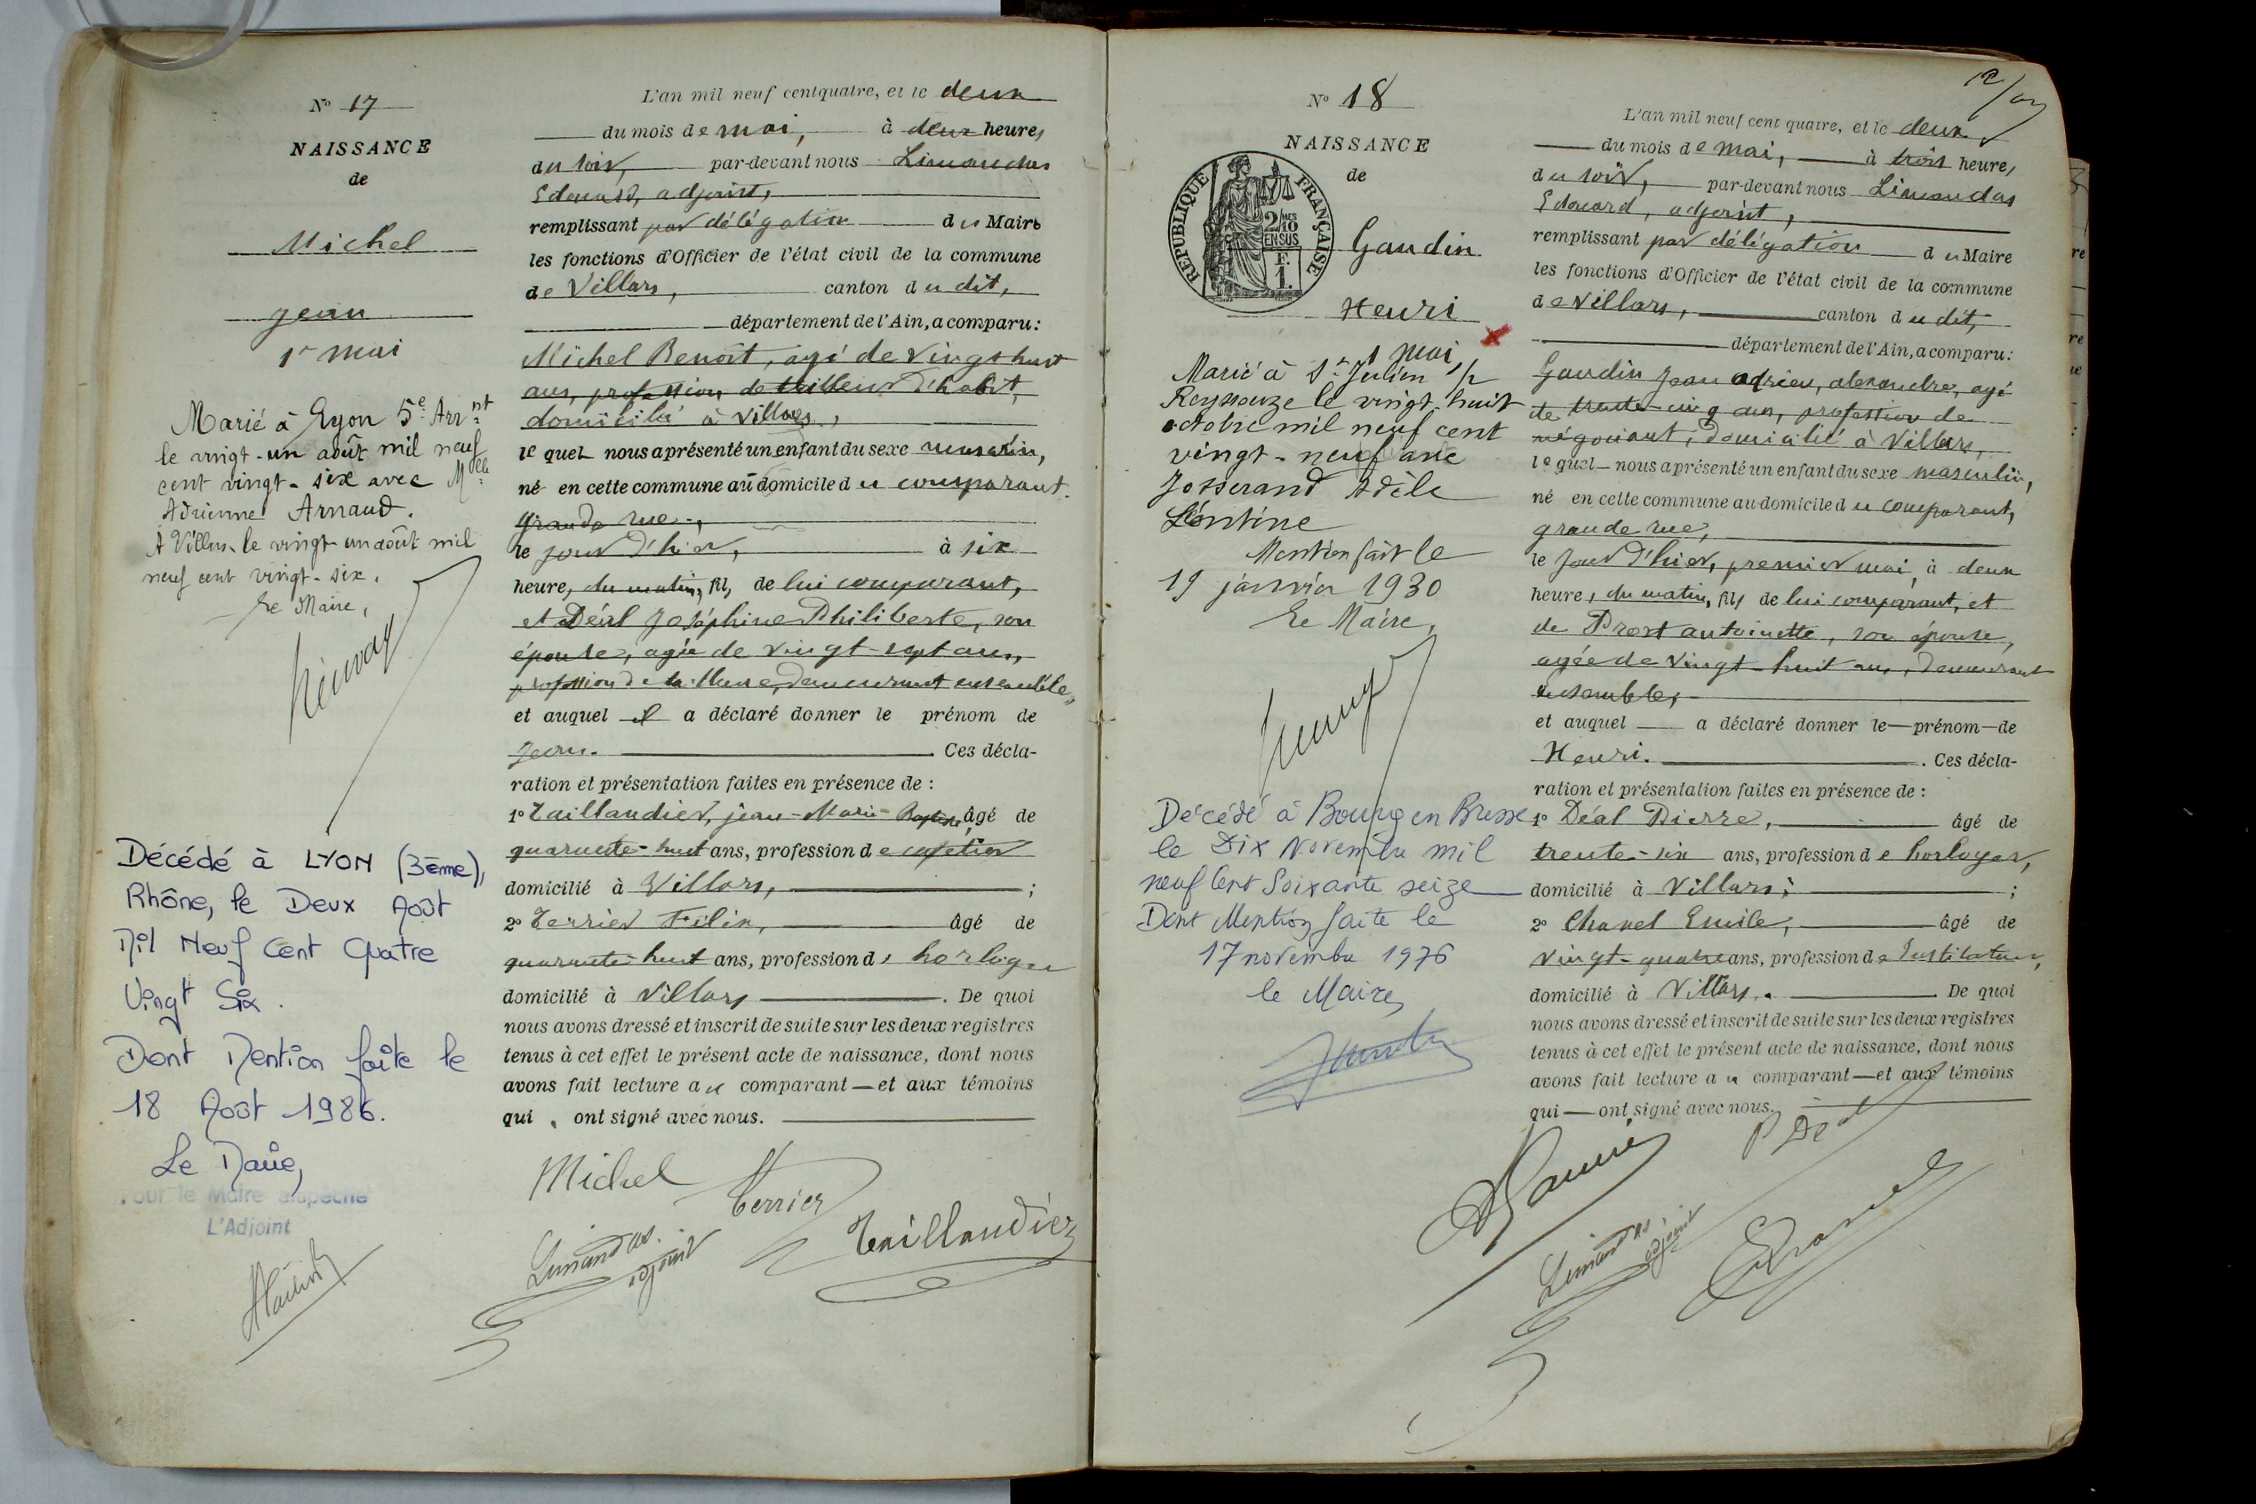 N° 17
NAISSANCE
de
Michel
Jean
1er mai
Marié à Lyon 5e Arrnt
le vingt-un août mil neuf
cent vingt-six avec Melle
Adrienne Arnaud.
A Villars le vingt-un août mil
neuf cent vingt-six.
Le Maire,
Décédé à LYON (3ème),
Rhône, le Deux Août
Mil Neuf Cent Quatre
Vingt Six.
Dont Mention faite le
18 Août 1986.
Le Maire,
Pour le Maire empêché
L'Adjoint
L'an mil neuf cent quatre, et le deux
du mois de mai, à deux heures
du soir, par-devant nous Limandas
Edouard, adjoint,
remplissant par délégation du Maire
les fonctions d'Officier de l'état civil de la commune
de Villars, canton du dit,
département de l'Ain, a comparu:
Michel Benoît, âgé de vingt huit
ans, profession de tailleur d'habit,
domicilié à Villars,
lequel nous a présenté un enfant du sexe masculin,
né en cette commune au domicile du comparant.
Grande rue,
le jour d'hier, à six
heures du matin, fils de lui comparant,
et Déal Joséphine Philiberte, son
épouse, agée de vingt-sept ans,
profession de tailleuse, demeurant ensemble,
et auquel il a déclaré donner le prénom de
Jean. Ces décla-
ration et présentation faites en présence de :
1° Taillandier, Jean-Marie-Baptiste, âgé de
quarante-huit ans, profession de cafetier
domicilié à Villars, ;
2° Terrier Félix, âgé de
quarante-huit ans, profession d' horloger
domicilié à Villars . De quoi
nous avons dressé et inscrit de suite sur les deux registres
tenus à cet effet le présent acte de naissance, dont nous
avons fait lecture au comparant — et aux témoins
qui ont signé avec nous.
Michel Terrier
Limandas Taillandier
adjoint
N° 18
NAISSANCE
de
RÉPUBLIQUE FRANÇAISE
2/10 DES
EN SUS
F.
1.
Gaudin
Henri
1 mai
Marié à St Julien s/r
Reyssouze le vingt-huit
octobre mil neuf cent
vingt-neuf avec
Josserand Adèle
Léontine
Mention fait le
19 janvier 1930
Le Maire,
Décédé à Bourg en Bresse
le Dix Novembre mil
neuf Cent Soixante seize
Dont Mention faite le
17 novembre 1976
le Maire,
L'an mil neuf cent quatre, et le deux
du mois de mai, à trois heures
du soir, par-devant nous Limandas
Edouard, adjoint,
remplissant par délégation du Maire
les fonctions d'Officier de l'état civil de la commune
de Villars, canton du dit,
département de l'Ain, a comparu:
Gaudin Jean Adrien, alexandre, agé
de trente-cinq ans, profession de
négociant, domicilié à Villars,
lequel nous a présenté un enfant du sexe masculin,
né en cette commune au domicile du comparant,
grande rue,
le jour d'hier, premier mai, à deux
heures du matin, fils de lui comparant, et
de Prost antoinette, son épouse,
agée de vingt-huit ans, demeurant
ensemble,
et auquel — a déclaré donner le — prénom — de
Henri. . Ces décla-
ration et présentation faites en présence de :
1° Déal Pierre, âgé de
trente-six ans, profession de horloger,
domicilié à Villars, ;
2° Chanel Emile, âgé de
vingt-quatre ans, profession de Instituteur,
domicilié à Villars. De quoi
nous avons dressé et inscrit de suite sur les deux registres
tenus à cet effet le présent acte de naissance, dont nous
avons fait lecture au comparant — et aux témoins
qui — ont signé avec nous.
P Déal
Limandas
adjoint